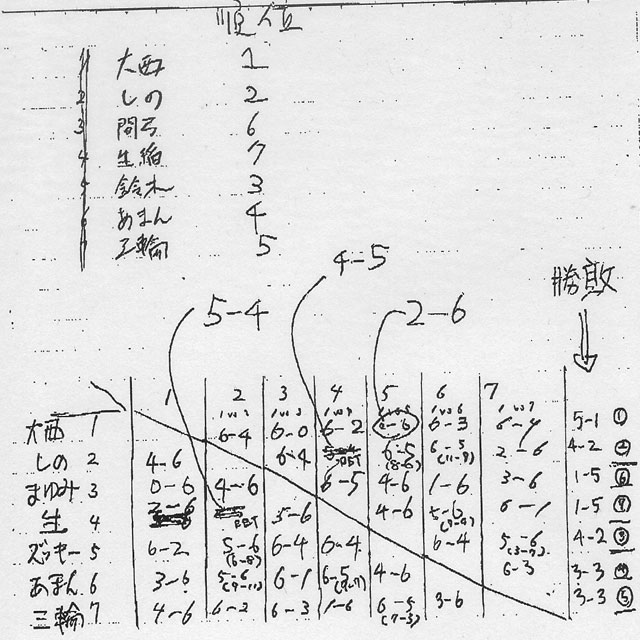 順位
1 大西 1
2 しの 2
3 間弓 6
4 生稲 7
5 鈴木 3
6 あまん 4
三輪 5
4-5
5-4
2-6
勝敗
1 2 3 4 5 6 7
大西 1 6-4 6-0 6-2 6-3 5-1 ①
しの 2 4-6 6-4 RET 6-5 6-5 2-6 4-2 ②
まゆみ 3 0-6 4-6 6-5 4-6 1-6 3-6 1-5 ⑥
生 4 2-6 RET 5-6 4-6 5-6 6-1 1-5
ズッキー 5 6-2 5-6 6-4 6-4 6-4 5-6 4-2 ③
あまん 6 3-6 5-6 6-1 6-5 4-6 6-3 3-3 ④
三輪 7 4-6 6-2 6-3 1-6 6-5 3-6 3-3 ⑤